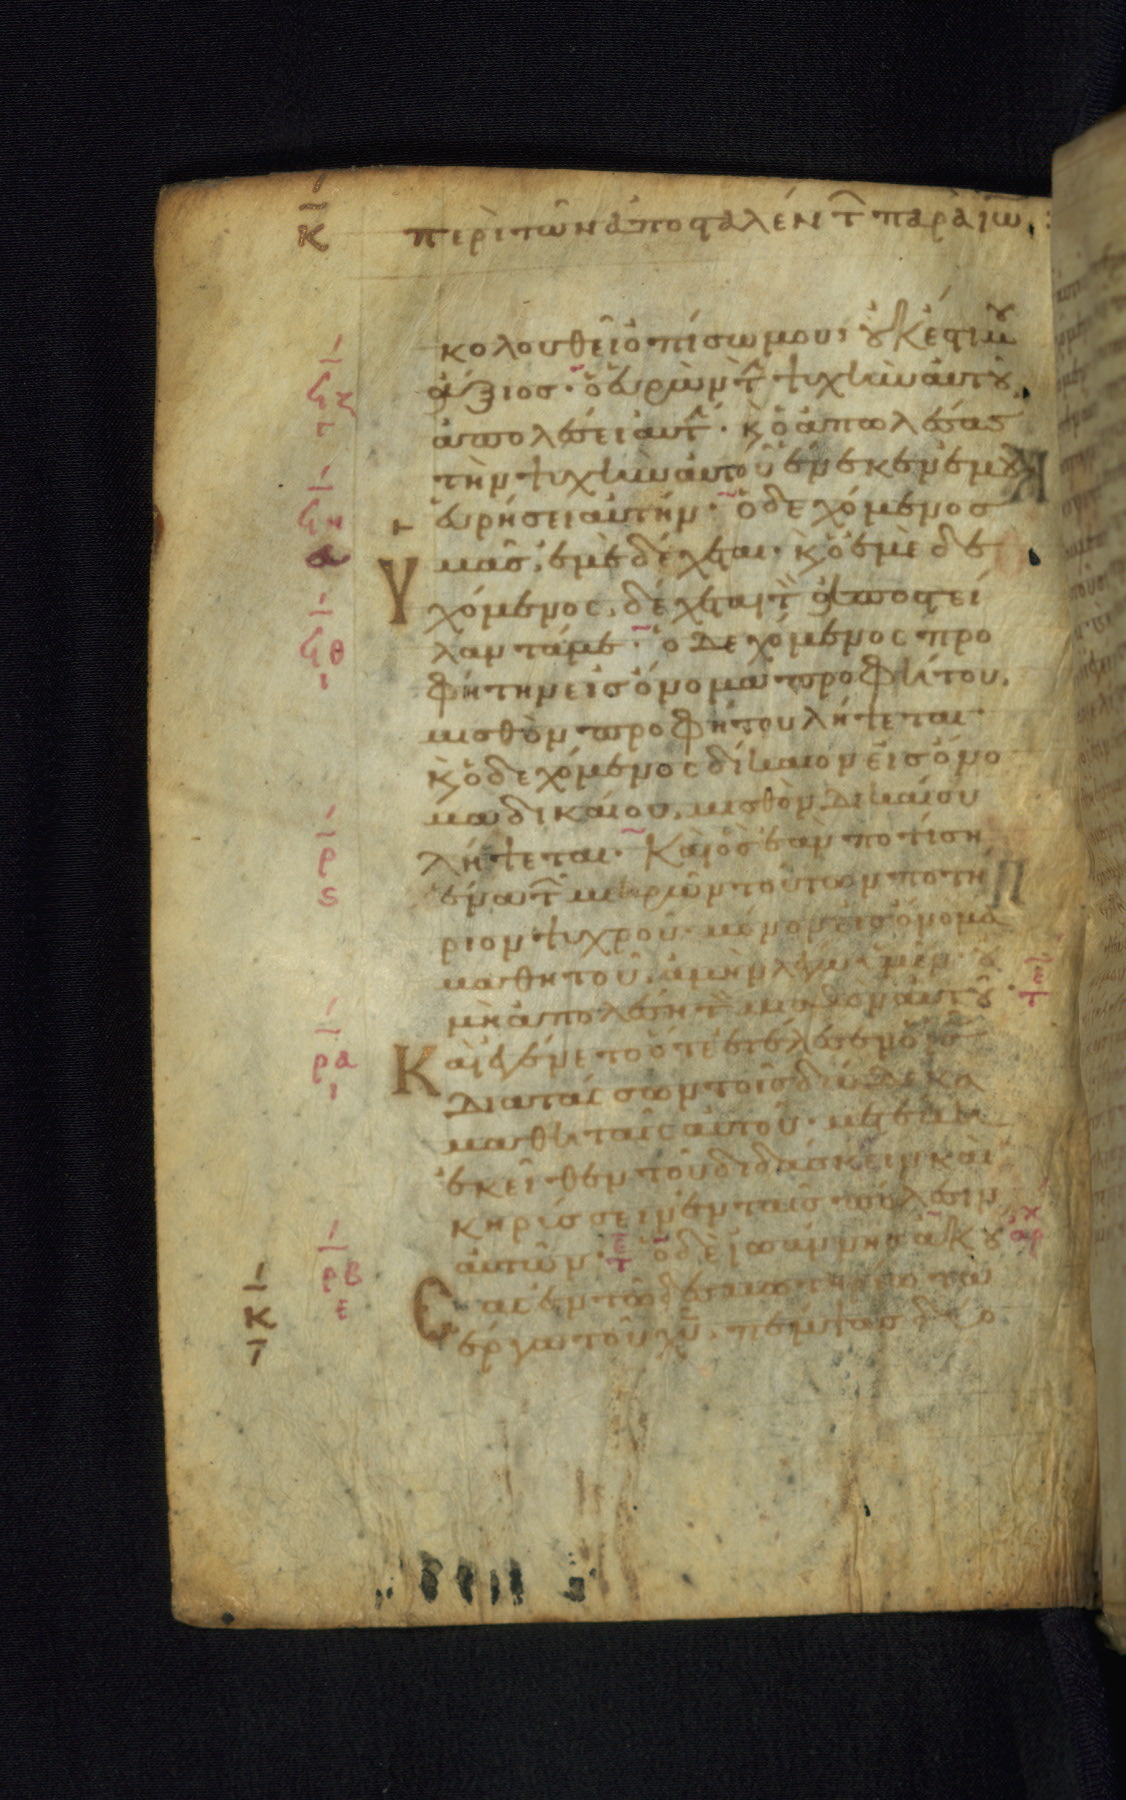 Κ περὶ τῶν ἀποσταλέντ παρὰ ἰω
κολουθεῖ ὀπίσω μου· οὐκ ἔστι μου
ϟζ ἄξιος· ὁ εὑρὼν τ ψυχὴν αὐτοῦ
γ ἀπολέσει αὐτ· κ ὁ ἀπολέσας
τὴν ψυχὴν αὐτοῦ ἕνεκεν ἐμοῦ
ϟη εὑρήσει αὐτήν· ὁ δεχόμενος
α ὑμᾶς, ἐμὲ δέχεται· κ ὁ ἐμὲ δε
χόμενος, δέχεται τ ἀποστεί
ϟθ λαντά με· ὁ δεχόμενος προ
ι φήτην εἰς ὄνομα προφήτου,
μισθὸν προφήτου λήψεται·
κ ὁ δεχόμενος δίκαιον εἰς ὄνο
μα δικαίου, μισθὸν δικαίου
ρ λήψεται· Καὶ ὃς ἐὰν ποτίση
ς ἕνα τ μικρῶν τούτων ποτή
ριον ψυχροῦ μόνον εἰς ὄνομα
μαθητοῦ, ἀμὴν λέγω ὑμῖν· οὐ
μὴ ἀπολέση τ μισθὸν αὐτοῦ·
ρα Καὶ ἐγένετο ὅτε ἐτέλεσεν ὁ ις
ι διατάσσων τοῖς δώδεκα
μαθηταῖς αὐτοῦ· μετέβη
ἐκεῖθεν τοῦ διδάσκειν καὶ
κηρύσσειν ἐν ταῖς πόλεσιν
αὐτῶν· ὁ δὲ ἰωάννης ἀκού αρχ
ρβ σας ἐν τῶ δεσμωτηρίω τὰ
ε ἔργα τοῦ χυ, πέμψας δύο
Κ